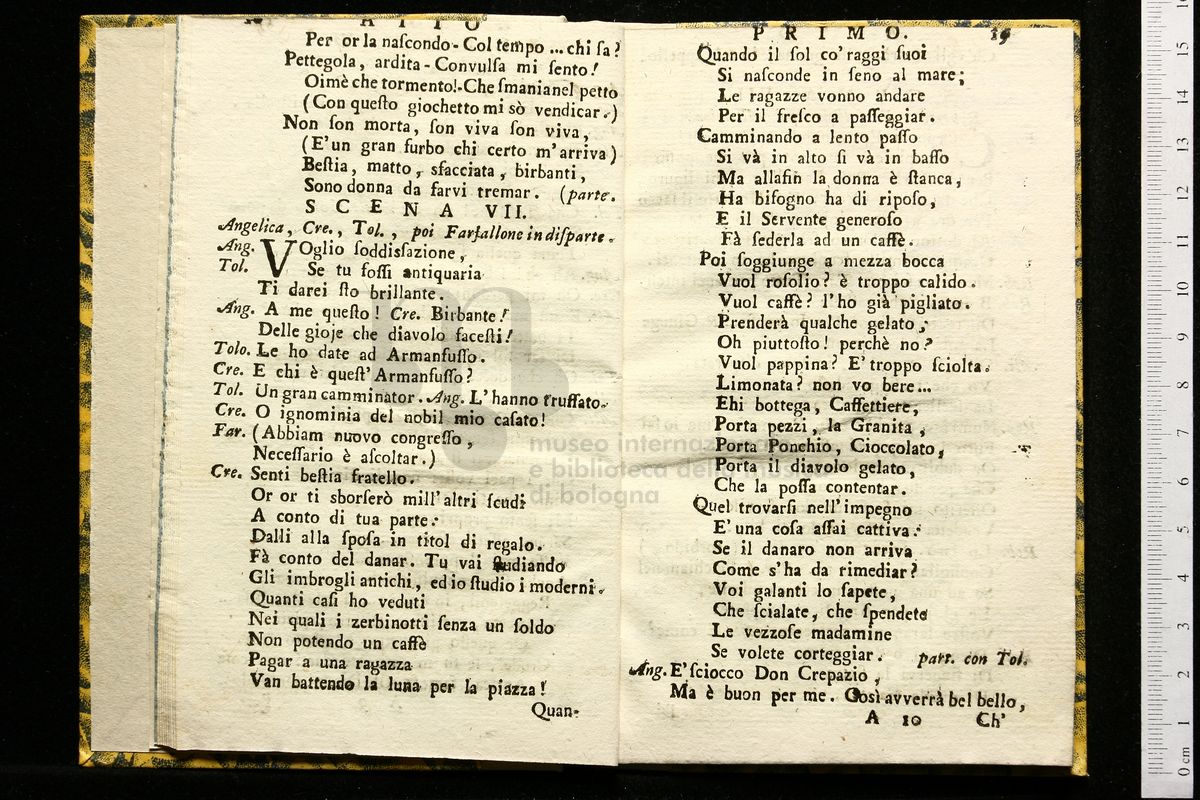 ATTO
Per or la naſcondo - Col tempo ... chi ſa?
Pettegola, ardita - Convulſa mi ſento!
Oimè che tormento!-Che ſmania nel petto
(Con queſto giochetto mi sò vendicar.)
Non ſon morta, ſon viva ſon viva,
(E' un gran furbo chi certo m'arriva)
Beſtia, matto, sfacciata, birbanti,
Sono donna da farvi tremar. (parte.
SCENA VII.
Angelica, Cre., Tol., poi Farfallone in diſparte.
Ang. VOglio ſoddisfazione,
Tol. Se tu foſſi antiquaria
Ti darei ſto brillante.
Ang. A me queſto! Cre. Birbante!
Delle gioje che diavolo faceſti!
Tolo. Le ho date ad Armanfuſſo.
Cre. E chi è queſt'Armanfuſſo?
Tol. Un gran camminator. Ang. L'hanno truffato.
Cre. O ignominia del nobil mio caſato!
Far. (Abbiam nuovo congreſſo,
Neceſſario è aſcoltar.)
Cre. Senti beſtia fratello.
Or or ti sborſerò mill'altri ſcudi
A conto di tua parte.
Dalli alla ſpoſa in titol di regalo.
Fà conto del danar. Tu vai ſtudiando
Gli imbrogli antichi, ed io ſtudio i moderni.
Quanti caſi ho veduti
Nei quali i zerbinotti ſenza un ſoldo
Non potendo un caffè
Pagar a una ragazza
Van battendo la luna per la piazza!
Quan-
PRIMO. 19
Quando il ſol co' raggi ſuoi
Si naſconde in ſeno al mare;
Le ragazze vonno andare
Per il freſco a paſſeggiar.
Camminando a lento paſſo
Si và in alto ſi và in baſſo
Ma allafin la donna è ſtanca,
Ha biſogno ha di ripoſo,
E il Servente generoſo
Fà ſederla ad un caffè.
Poi ſoggiunge a mezza bocca
Vuol roſolio? è troppo calido.
Vuol caffè? l'ho già pigliato.
Prenderà qualche gelato;
Oh piuttoſto! perchè no?
Vuol pappina? E' troppo ſciolta.
Limonata? non vo bere...
Ehi bottega, Caffettiere,
Porta pezzi, la Granita,
Porta Ponchio, Cioccolato,
Porta il diavolo gelato,
Che la poſſa contentar.
Quel trovarſi nell'impegno
E' una coſa aſſai cattiva:
Se il danaro non arriva
Come s'ha da rimediar?
Voi galanti lo ſapete,
Che ſcialate, che ſpendete
Le vezzoſe madamine
Se volete corteggiar. part. con Tol.
Ang. E' ſciocco Don Crepazio,
Ma è buon per me. Così avverrà bel bello,
A 10 Ch'
museo internazionale
e biblioteca della musica
di bologna
0 cm 1 2 3 4 5 6 7 8 9 10 11 12 13 14 15